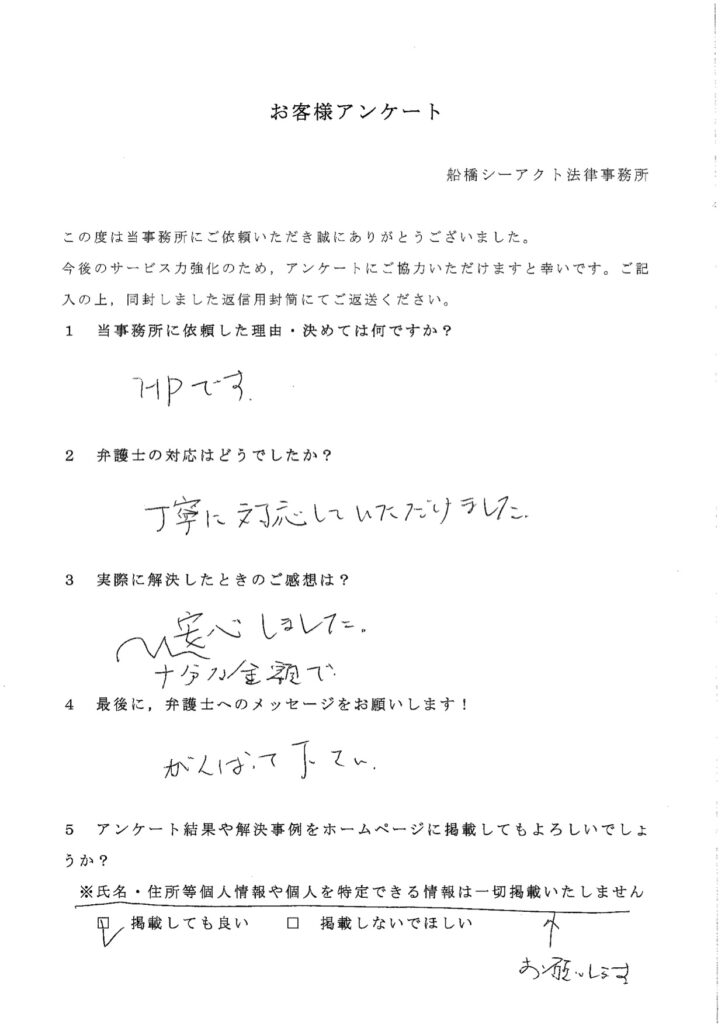 お客様アンケート
船橋シーアクト法律事務所
この度は当事務所にご依頼いただき誠にありがとうございました。
今後のサービス力強化のため，アンケートにご協力いただけますと幸いです。ご記
入の上，同封しました返信用封筒にてご返送ください。
1 当事務所に依頼した理由・決めては何ですか？
HPです.
2 弁護士の対応はどうでしたか？
丁寧に対応していただけました.
3 実際に解決したときのご感想は？
安心しました。
十分な金額で
4 最後に，弁護士へのメッセージをお願いします！
がんばって下さい.
5 アンケート結果や解決事例をホームページに掲載してもよろしいでしょ
うか？
※氏名・住所等個人情報や個人を特定できる情報は一切掲載いたしません
☑ 掲載しても良い □ 掲載しないでほしい
お願いします